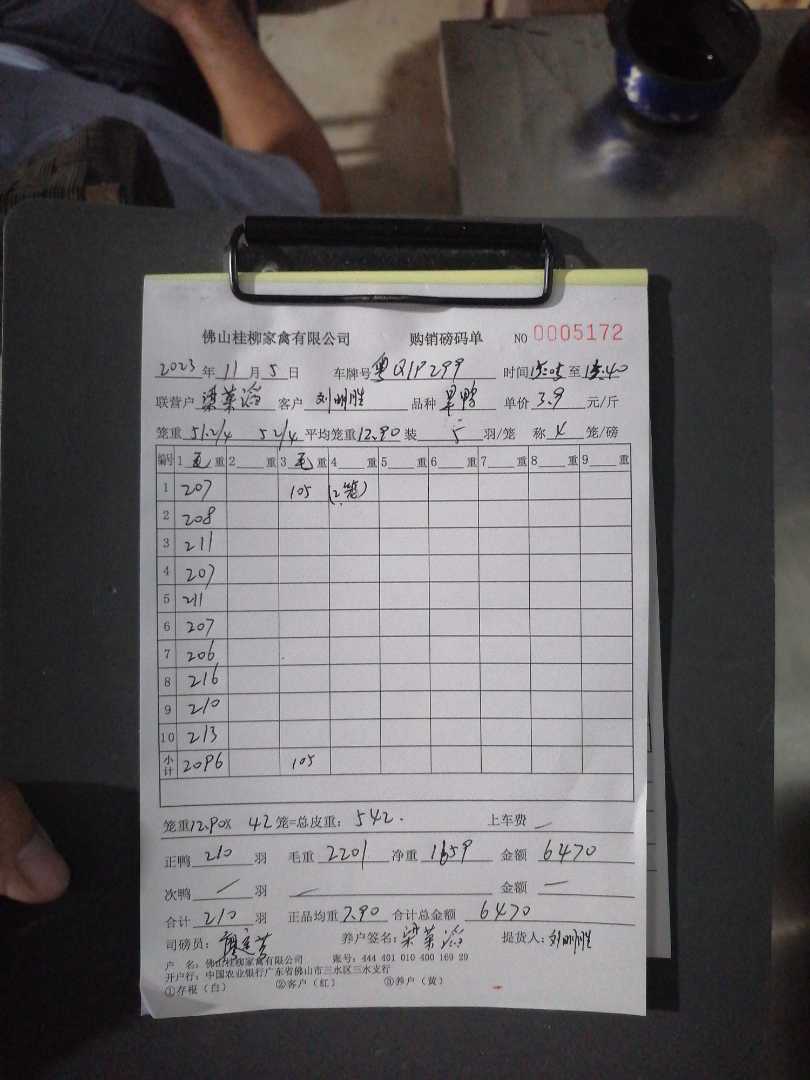 佛山桂柳家禽有限公司 购销磅码单 NO 0005172
2023年11月5日 车牌号粤Q1P299 时间15:05至15:40
联营户 客户 刘明胜 品种 单价3.9元/斤
笼重51.2/4 52/4 平均笼重12.90装5羽/笼 称4笼/磅
编号 1毛重 2重 3毛重 4重 5重 6重 7重 8重 9重
1 207 105 (2笼)
2 208
3 211
4 207
5 211
6 207
7 206
8 216
9 210
10 213
小计 2096 105
笼重12.90X 42笼=总皮重:542. 上车费 —
正鸭210羽 毛重2201 净重1659 金额6470
次鸭 — 羽 — 金额 —
合计210羽 正品均重7.90 合计总金额6470
司磅员: 养户签名: 提货人:刘明胜
户 名:佛山桂柳家禽有限公司 账号:444 401 010 400 169 29
开户行:中国农业银行广东省佛山市三水区三水支行
①存根(白) ②客户(红) ③养户(黄)